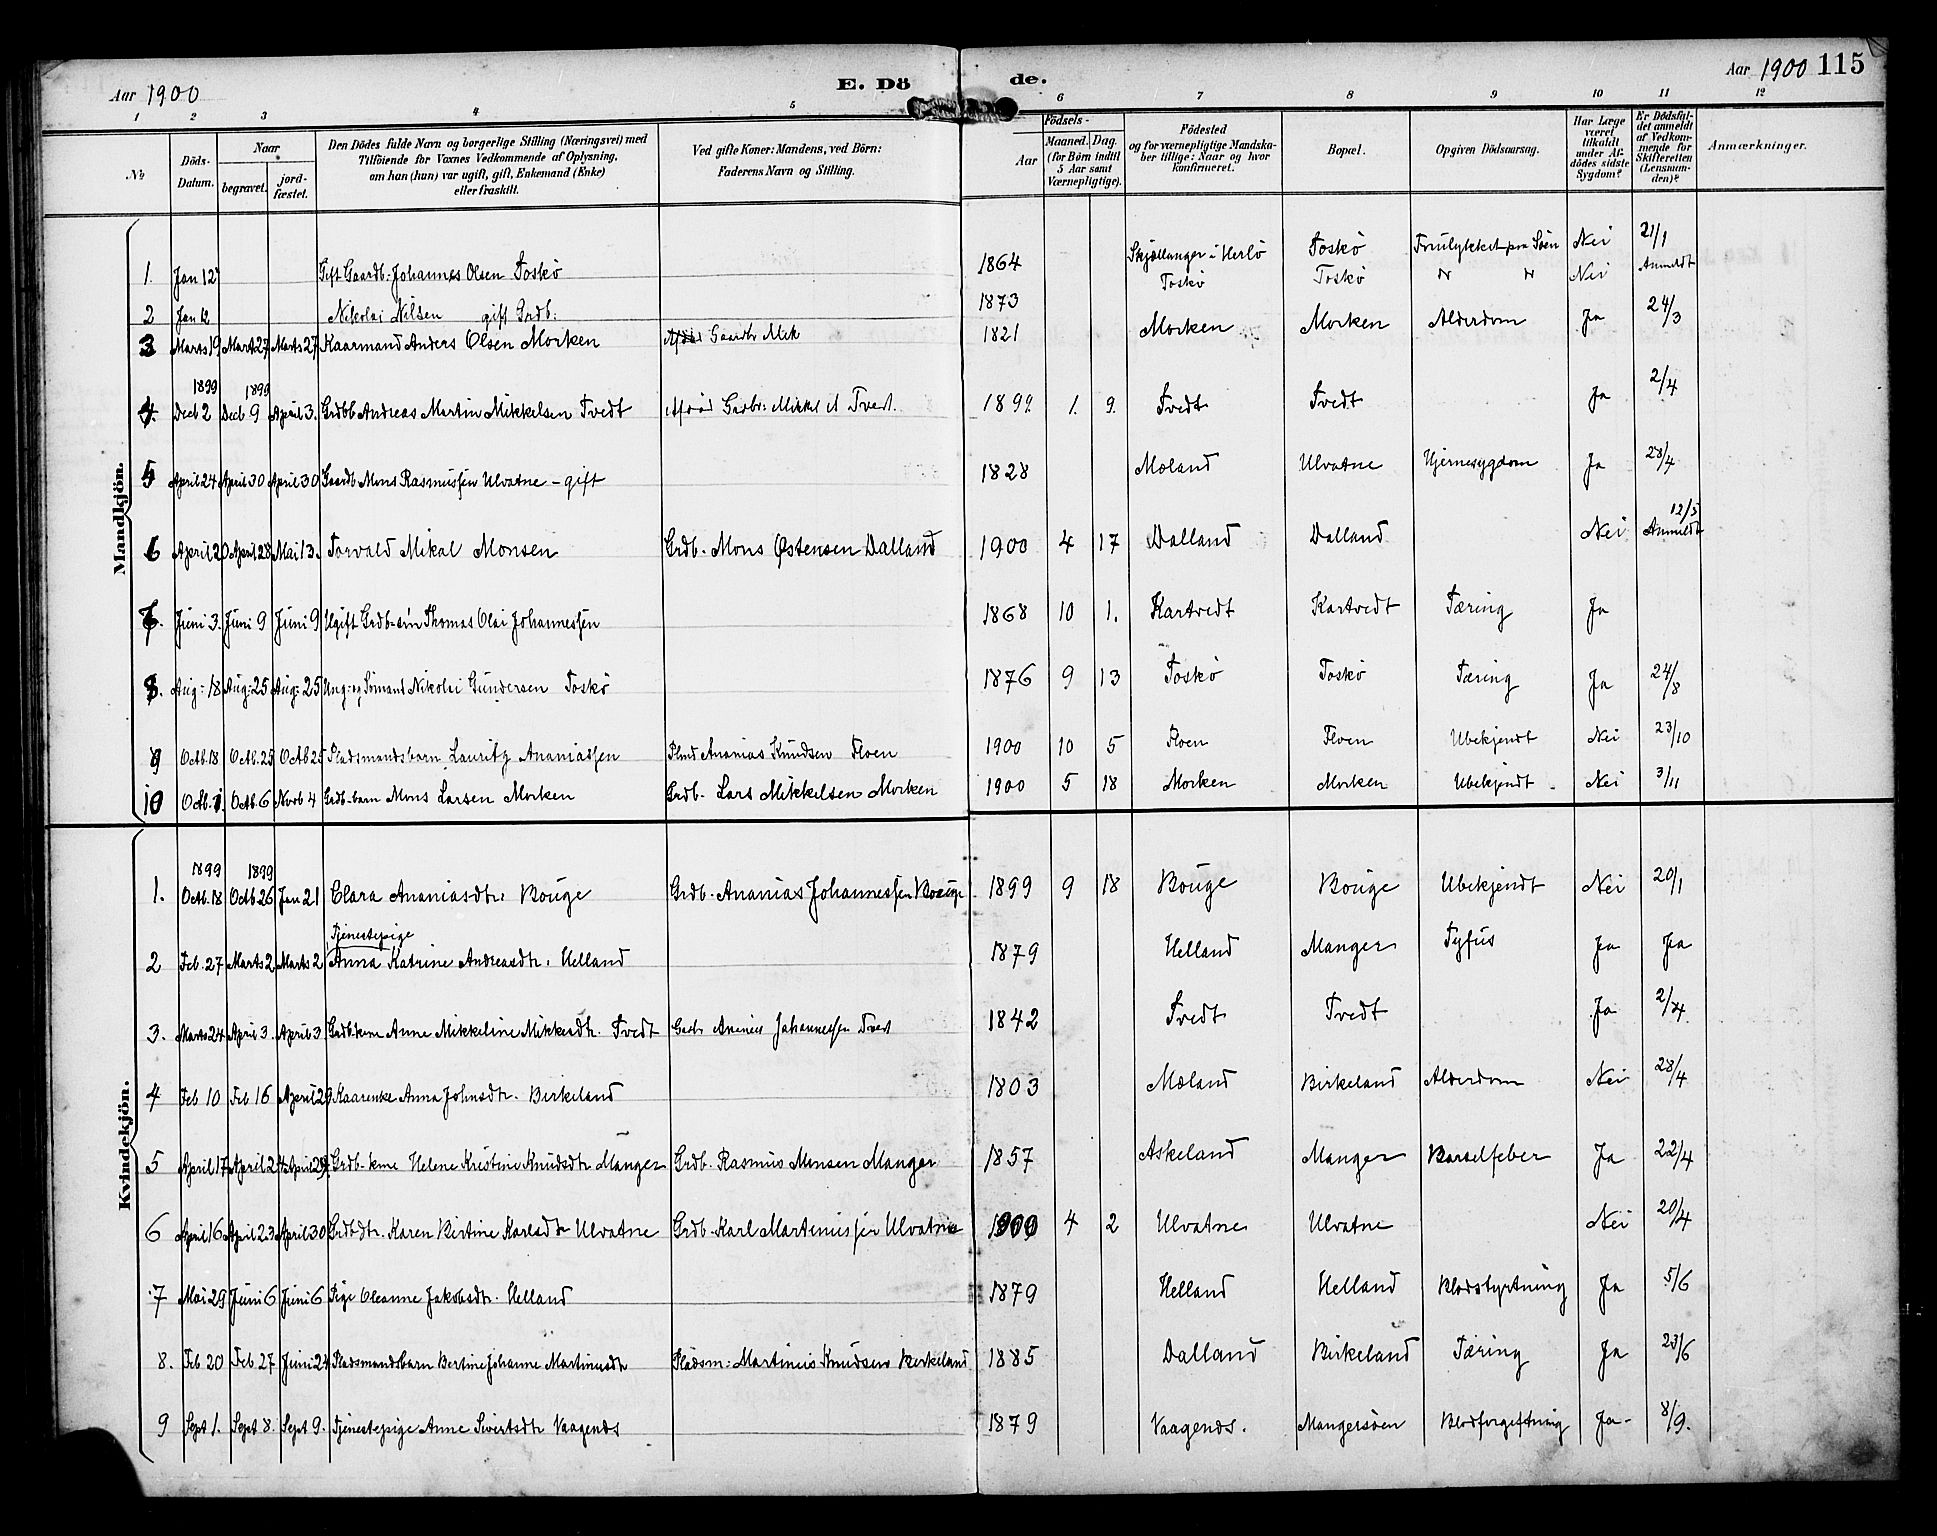 Aar 1900 E. Dö de. Aar 1900 115
1 2 3 4 5 6 7 8 9 10 11 12
No
Döds-Datum.
Naar
begravet.
jord-fæstet.
Den Dödes fulde Navn og borgerlige Stilling (Næringsvei) med
Tilföiende for Voxnes Vedkommende af Oplysning,
om han (hun) var ugift, gift, Enkemand (Enke)
eller fraskilt.
Ved gifte Koner: Mandens, ved Börn:
Faderens Navn og Stilling.
Födsels-
Aar
Maaned. Dag.
(for Börn indtil
5 Aar samt
Værnepligtige).
Födested
og for værnepligtige Mandska-
ber tillige: Naar og hvor
konfirmeret.
Bopæl.
Opgiven Dödsaarsag.
Har Læge
været
tilkaldt
under Af-
dödes sidste
Sygdom?
Er Dödsfal-
det anmeldt
af Vedkom-
mende for
Skifteretten
(Lensman-
den)?
Anmærkninger.
Mandkjön.
1. Jan 12 Gift Gaardb. Johannes Olsen Toskø 1864 Skjællanger i Herlø Toskø Forulykket paa Søen Nei 21/1 Anmeldt
2 Jan 12 Nikolai Nilsen gift Grdb. 1873 Toskø Toskø " " Nei
3 Marts 19 Marts 27 Marts 27 Kaarmand Anders Olsen Morken 1821 Morken Morken Alderdom Ja 24/3
4. 1899 Decb 2 1899 Decb 9 April 3. Grdbb Andreas Martin Mikkelsen Tvedt 1899 1. 9. Tvedt Tvedt Ja 2/4
5 April 24 April 30 April 30 Gaardb Mons Rasmussen Ulvatne - gift 1828 Mæland Ulvatne Hjernesygdom Ja 28/4
6 April 20 April 28 Mai 13. Torvald Mikal Monsen Grdb. Mons Østensen Dalland 1900 4 17 Dalland Dalland Nei 12/5 Anmeldt
7. Juni 3. Juni 9 Juni 9 Ugift Grdb-søn Thomas Olai Johannessen 1868 10 1. Kartvedt Kartvedt Tæring Ja
8. Aug: 18 Aug: 25 Aug: 25 Ung: og Sømand Nikolai Gundersen Toskø 1876 9 13 Toskø Toskø Tæring Ja 24/8
9 Octb. 18 Octb. 25 Octb 25 Pladsmandsbarn Lauritz Ananiassen Plmd Ananias Knudsen Floen 1900 10 5 Floen Floen Ubekjendt Nei 23/10
10 Octb. 1. Octb. 6 Novb 4 Grdb-barn Mons Larsen Morken Grdb. Lars Mikkelsen Morken 1900 5 18 Morken Morken Ubekjendt. Nei 3/11
Kvindekjön.
1. 1899 Octb. 18 1899 Octb 26 Jan 21 Clara Ananiasdtr. Bouge Grdb. Ananias Johannessen Bouge 1899 9 18 Bouge Bouge Ubekjendt Nei 20/1
Tjenestepige
2 Feb. 27 Marts 2 Marts 2 Anna Katrine Andreasdtr. Helland 1879 Helland Manger Tyfus Ja Ja
3. Marts 24 April 3. April 3 Grdb.kone Anne Mikkeline Mikkelsdtr. Tvedt Ananias Johannessen Tvedt 1842 Tvedt Tvedt Ja 2/4.
4 Feb 10 Feb 16 April 29 Kaarenke Anna Johnsdtr. Birkeland 1803 Mæland Birkeland Alderdom Nei 28/4
5 April 17 April 24 April 29. Grdb-kone Helene Kristine Knudsdtr Manger Grdb. Rasmus Monsen Manger 1857 Askeland Manger Barselfeber Ja 22/4
6 April 16 April 23 April 30 Grdbdtr. Karen Bertine Karlsdtr Ulvatne Grdb. Karl Martinussen Ulvatne 1900 4 2 Ulvatne Ulvatne Nei 20/4
7 Mai 29 Juni 6 Juni 6 Pige Oleanne Jakobsdtr. Helland 1879 Helland Helland Blodstyrtning Ja 5/6
8. Feb. 20 Feb. 27 Juni 24 Pladsmandsbarn Bertine Johanne Martinusdtr Pladsm: Martinus Knudsen Birkeland 1885 Dalland Birkeland Tæring Ja 23/6
9 Sept 1. Sept 8. Sept 9. Tjenestepige Anne Sivertsdtr Vaagenes 1879 Vaagenes. Mangersøen Blodforgiftning Ja- 8/9.